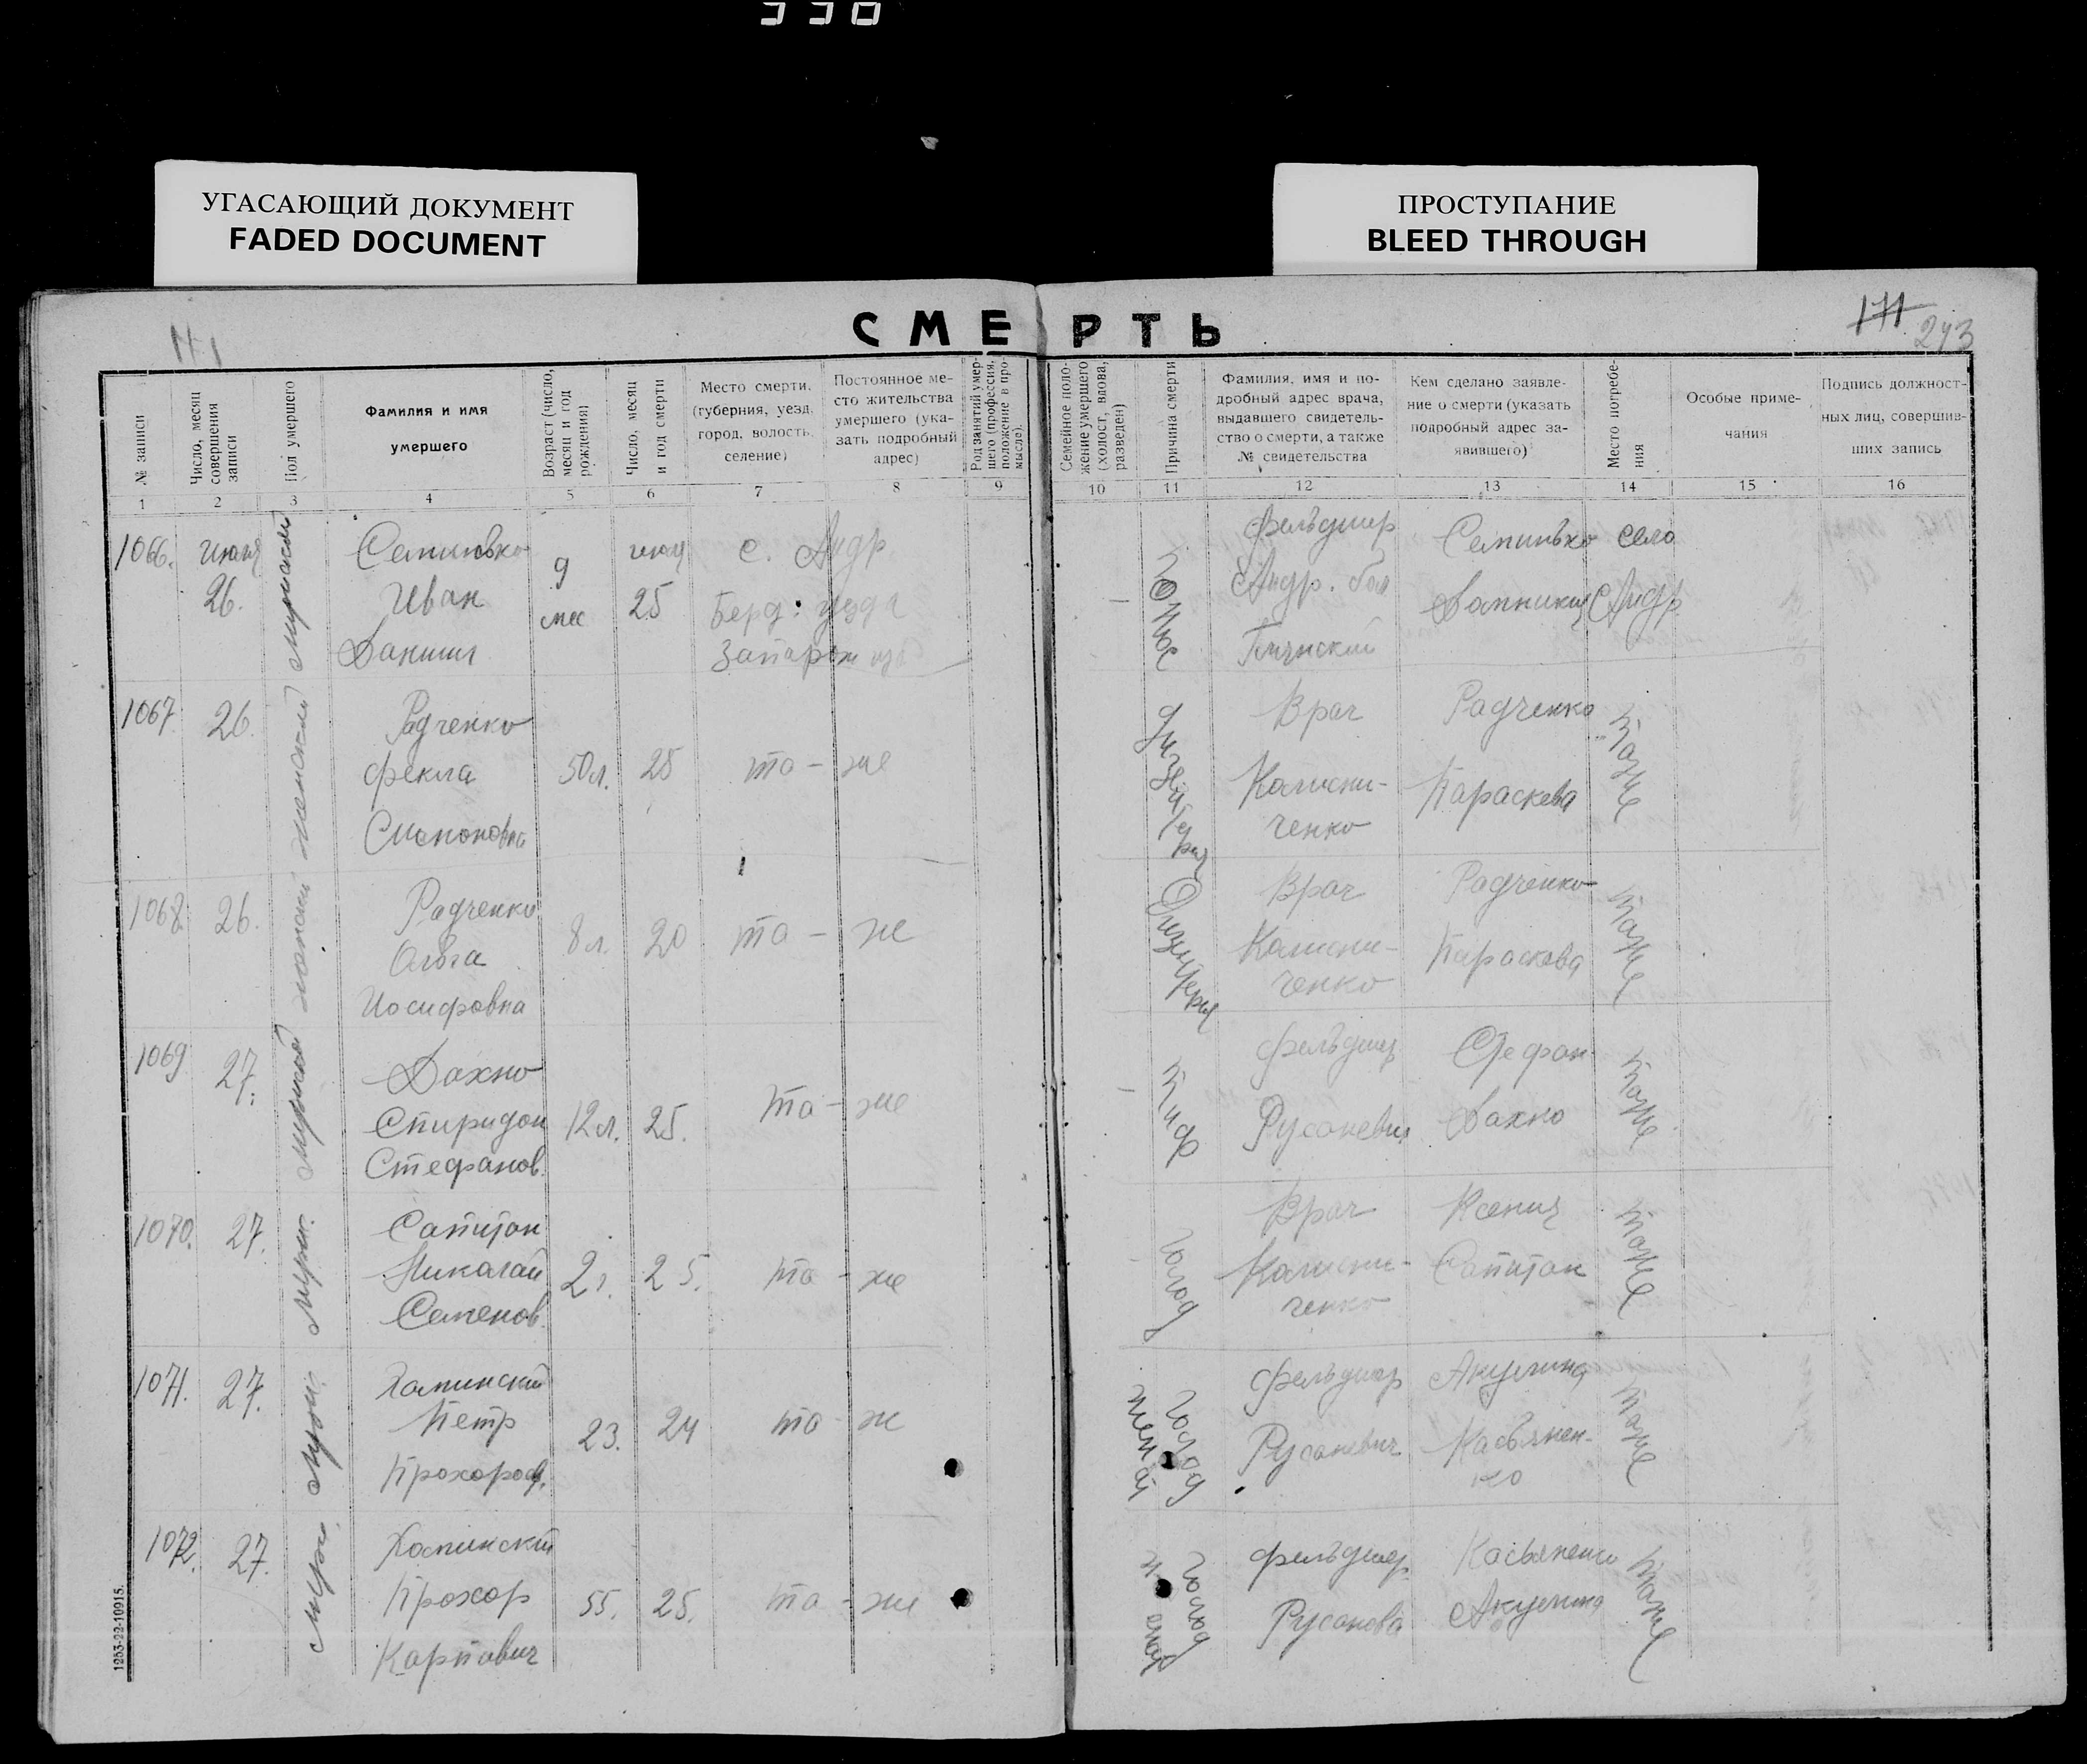 330
УГАСАЮЩИЙ ДОКУМЕНТ
FADED DOCUMENT
ПРОСТУПАНИЕ
BLEED THROUGH
СМЕРТЬ
171
№ записи
Число, месяц совершения записи
Пол умершего
Фамилия и имя
умершего
Возраст (число, месяц и год рождения)
Число, месяц и год смерти
Место смерти,
(губерния, уезд,
город, волость,
селение)
Постоянное ме-
сто жительства
умершего (ука-
зать подробный
адрес)
Род занятий умер-
шего (профессия,
положение в про-
мысле).
Семейное поло-
жение умершего
(холост, вдова,
разведен)
Причина смерти
Фамилия, имя и по-
дробный адрес врача,
выдавшего свидетель-
ство о смерти, а также
№ свидетельства
Кем сделано заявле-
ние о смерти (указать
подробный адрес за-
явившего)
Место погребе-
ния
Особые приме-
чания
Подпись должност-
ных лиц, совершив-
ших запись
1 2 3 4 5 6 7 8 9 10 11 12 13 14 15 16
1066.
июня
26.
мужской
Иван
9
мес
25
с. Андр
Берд. уезда
понос
фельдшер
Андр. бол
село
Андр
1067
26.
женский
Радченко
фекла
50 л.
25
та - же
дизентерия
Врач
Колисни-
ченко
Радченко
Параскева
тоже
1068.
26.
женский
Радченко
Ольга
Иосифовна
8 л.
20
та - же
дизентерия
Врач
Колисни-
ченко
Радченко
Параскева
тоже
1069
27.
мужской
Дахно
Спиридон
Стефанов.
12 л.
25.
та - же
тиф
фельдшер
Русаневич
Стефан
Дахно
тоже
1070.
27.
мужск.
Сапитон
Николай
Семенов.
2 г.
25.
та - же
голод
Врач
Колисни-
ченко
Ксения
Сапитон
тоже
1071.
27.
муж.
Хоминский
Петр
Прохоров.
23.
24
та - же
женат
голод
фельдшер
Русаневич
Акулина
Касьянен-
ко
тоже
1072.
27.
муж.
Хоминский
Прохор
Карпович
55.
25.
та - же
голод
фельдшер
Русанова
Касьяненко
Акулина
тоже
1253-22-10915.